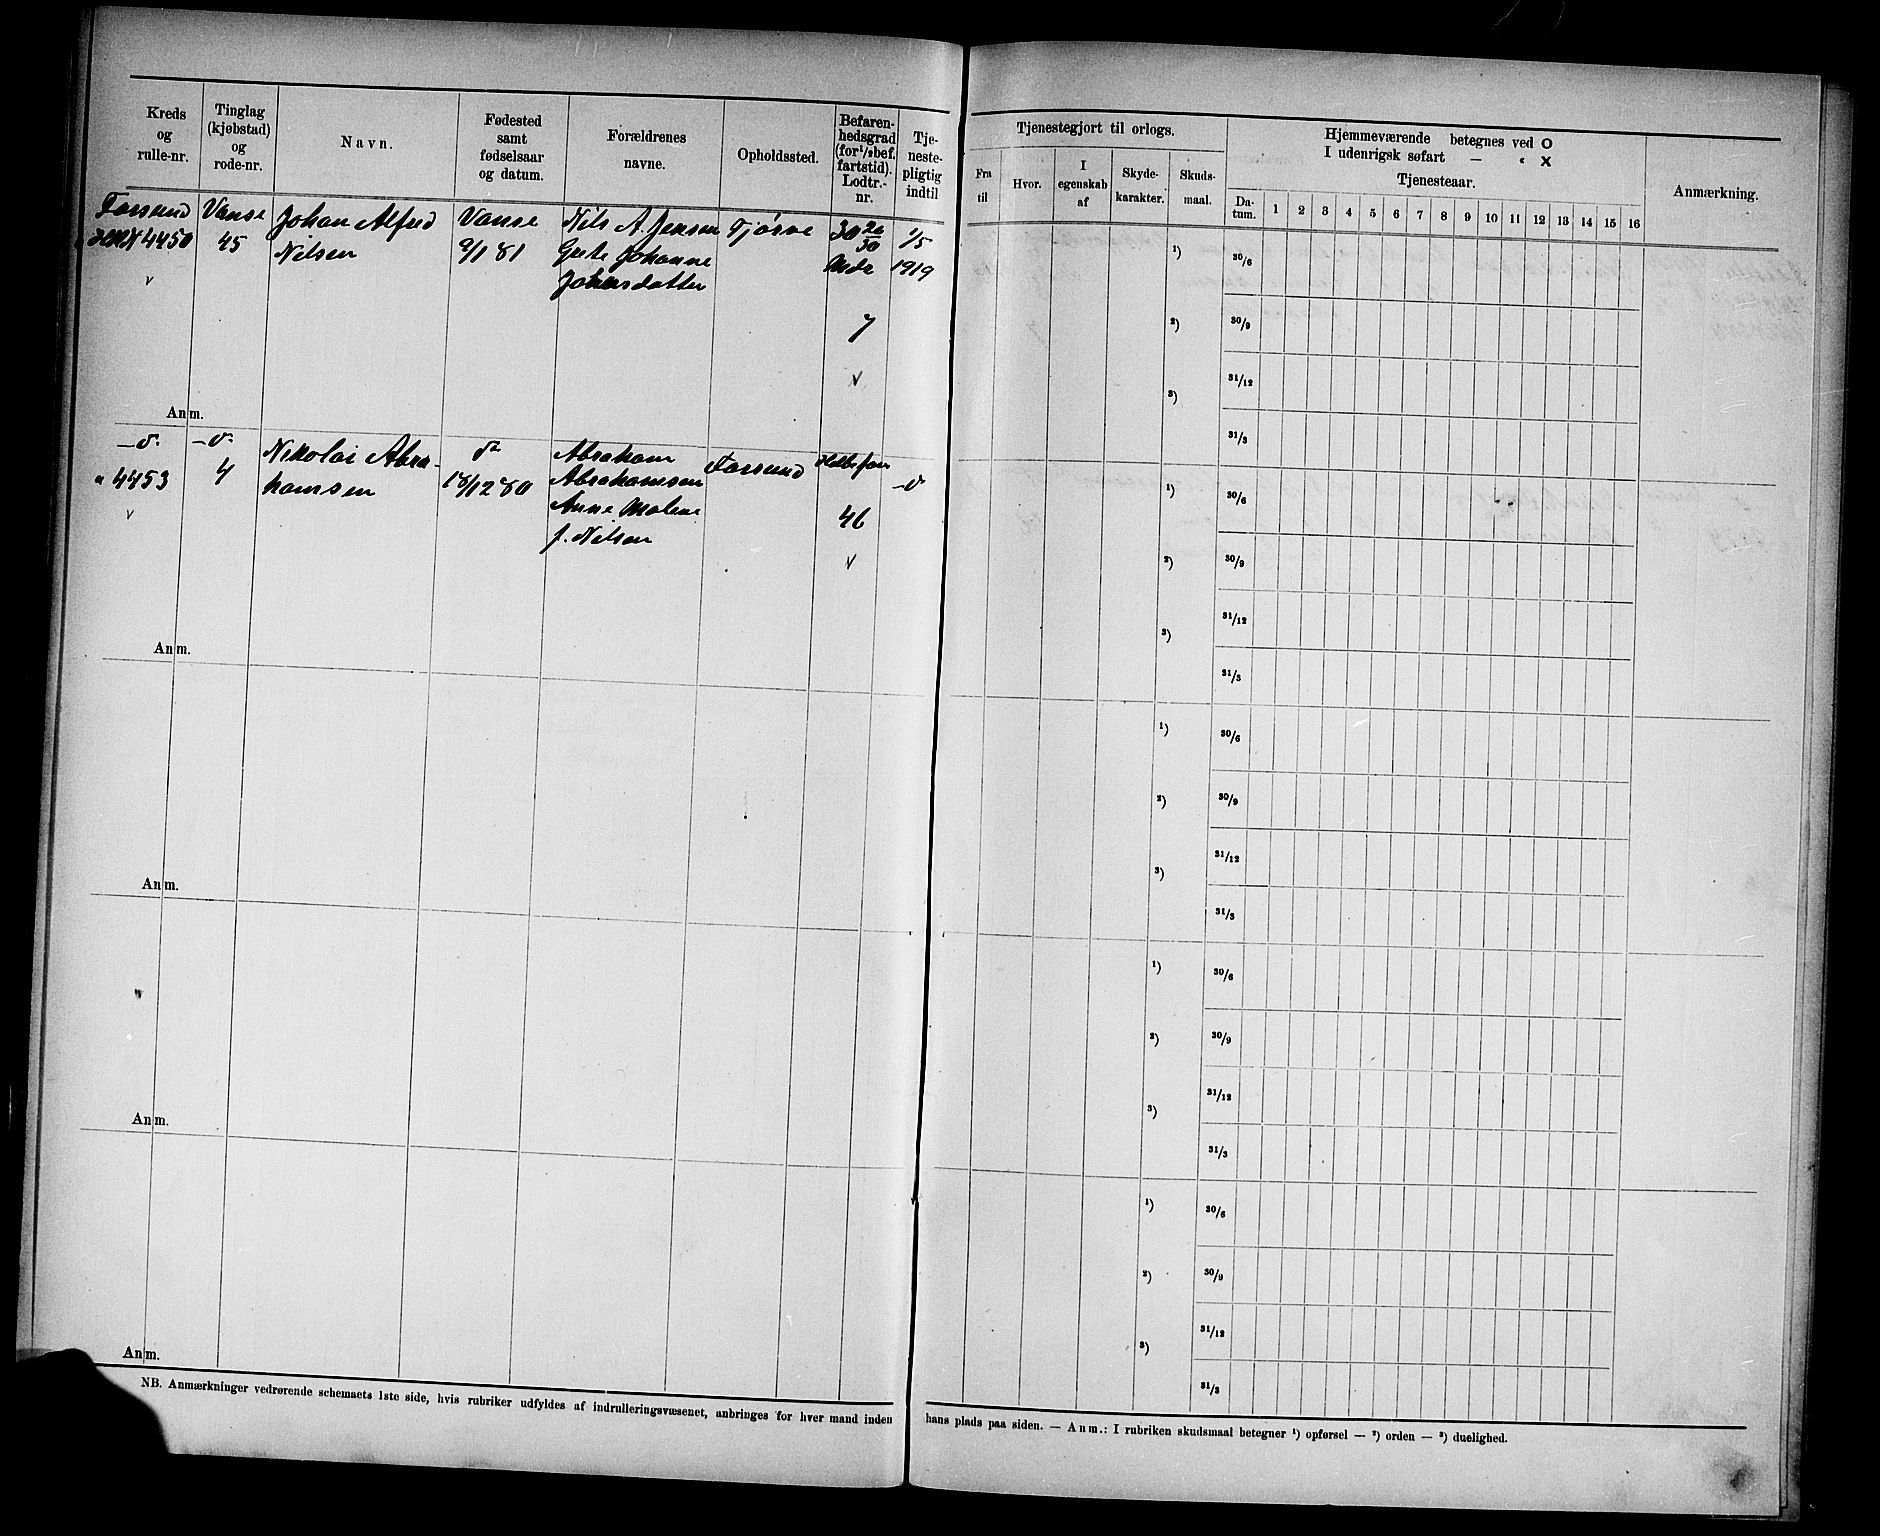 Kreds
og
rulle-nr.
Tinglag
(kjøbstad)
og
rode-nr.
Navn.
Fødested
samt
fødselsaar
og datum.
Forældrenes
navne.
Opholdssted.
Befaren-
hedsgrad
(for 1/2 bef.
fartstid).
Lodtr.-
nr.
Tje-
neste-
pligtig
indtil
Tjenestegjort til orlogs.
Fra
til
Hvor.
I
egenskab
af
Skyde-
karakter.
Skuds-
maal.
Hjemmeværende betegnes ved O
I udenrigsk søfart — " X
Tjenesteaar.
Da-
tum. 1 2 3 4 5 6 7 8 9 10 11 12 13 14 15 16
Anmærkning.
Farsund
4450
Vanse
45
Johan Alfred
Nilsen
Vanse
9/1 81
Nils A. Jensen
Grete Johanne
Johnsdatter
Tjørve
30 26/30
Mdr
7
1/5
1919
1) 30/6
2) 30/9
31/12
3)
31/3
Anm.
— d°
" 4453
— d°
4
Nikolai Abra-
hamsen
d°
18/12 80
Abraham
Abrahamsen
Anne Malene
f. Nilsen
Farsund
Halvbefaren
46
— d°
1) 30/6
2) 30/9
31/12
3)
31/3
Anm.
1) 30/6
2) 30/9
31/12
3)
31/3
Anm.
1) 30/6
2) 30/9
31/12
3)
31/3
Anm.
1) 30/6
2) 30/9
31/12
3)
31/3
Anm.
NB. Anmærkninger vedrørende schemaets 1ste side, hvis rubriker udfyldes af indrulleringsvæsenet, anbringes for hver mand inden hans plads paa siden. — Anm.: I rubriken skudsmaal betegner 1) opførsel — 2) orden — 3) duelighed.